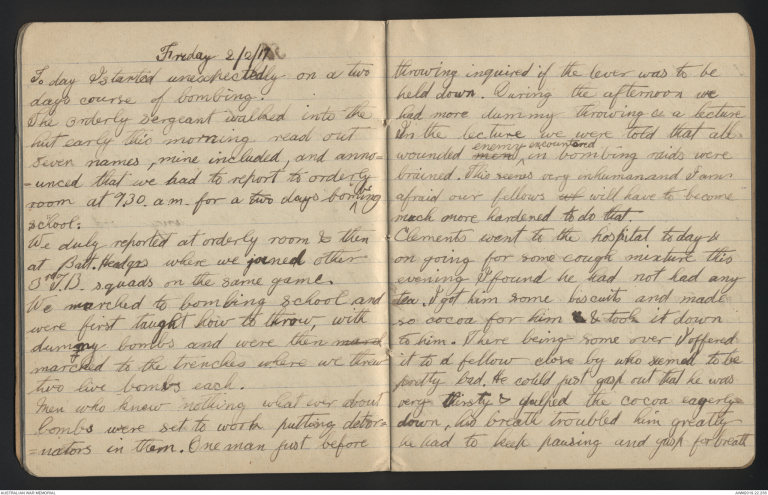 Friday 2/2/17
To day I started unexpectedly on a two
days course of bombing.
The orderly sergeant walked into the
hut early this morning read out
seven names, mine included, and anno-
-unced that we had to report to orderly
room at 9.30. a.m. for a two days bombing
school.
We duly reported at orderly room & then
at Batt. Headqrs where we joined other
squads on the same game.
We marched to bombing school and
were first taught how to throw, with
dummy bombs and were then
marched to the trenches where we threw
two live bombs each.
Men who knew nothing what ever about
bombs were set to work putting deton-
-nators in them. One man just before
throwing inquired if the lever was to be
held down. During the afternoon we
had more dummy throwing & a lecture
In the lecture we were told that all
wounded enemy encountered in bombing raids were
brained. This seems very inhuman and I am
afraid our fellows will have to become
much more hardened to do that.
Clements went to the hospital today &
on going for some cough mixture this
evening I found he had not had any
tea. I got him some biscuits and made
so cocoa for him & took it down
to him. There being some over I offered
it to a fellow close by who seemed to be
pretty bad. He could just gasp out that he was
very thirsty & gulped the cocoa eagerly
down, his breath troubled him greatly
he had to keep pausing and gasp for breath
AUSTRALIAN WAR MEMORIAL